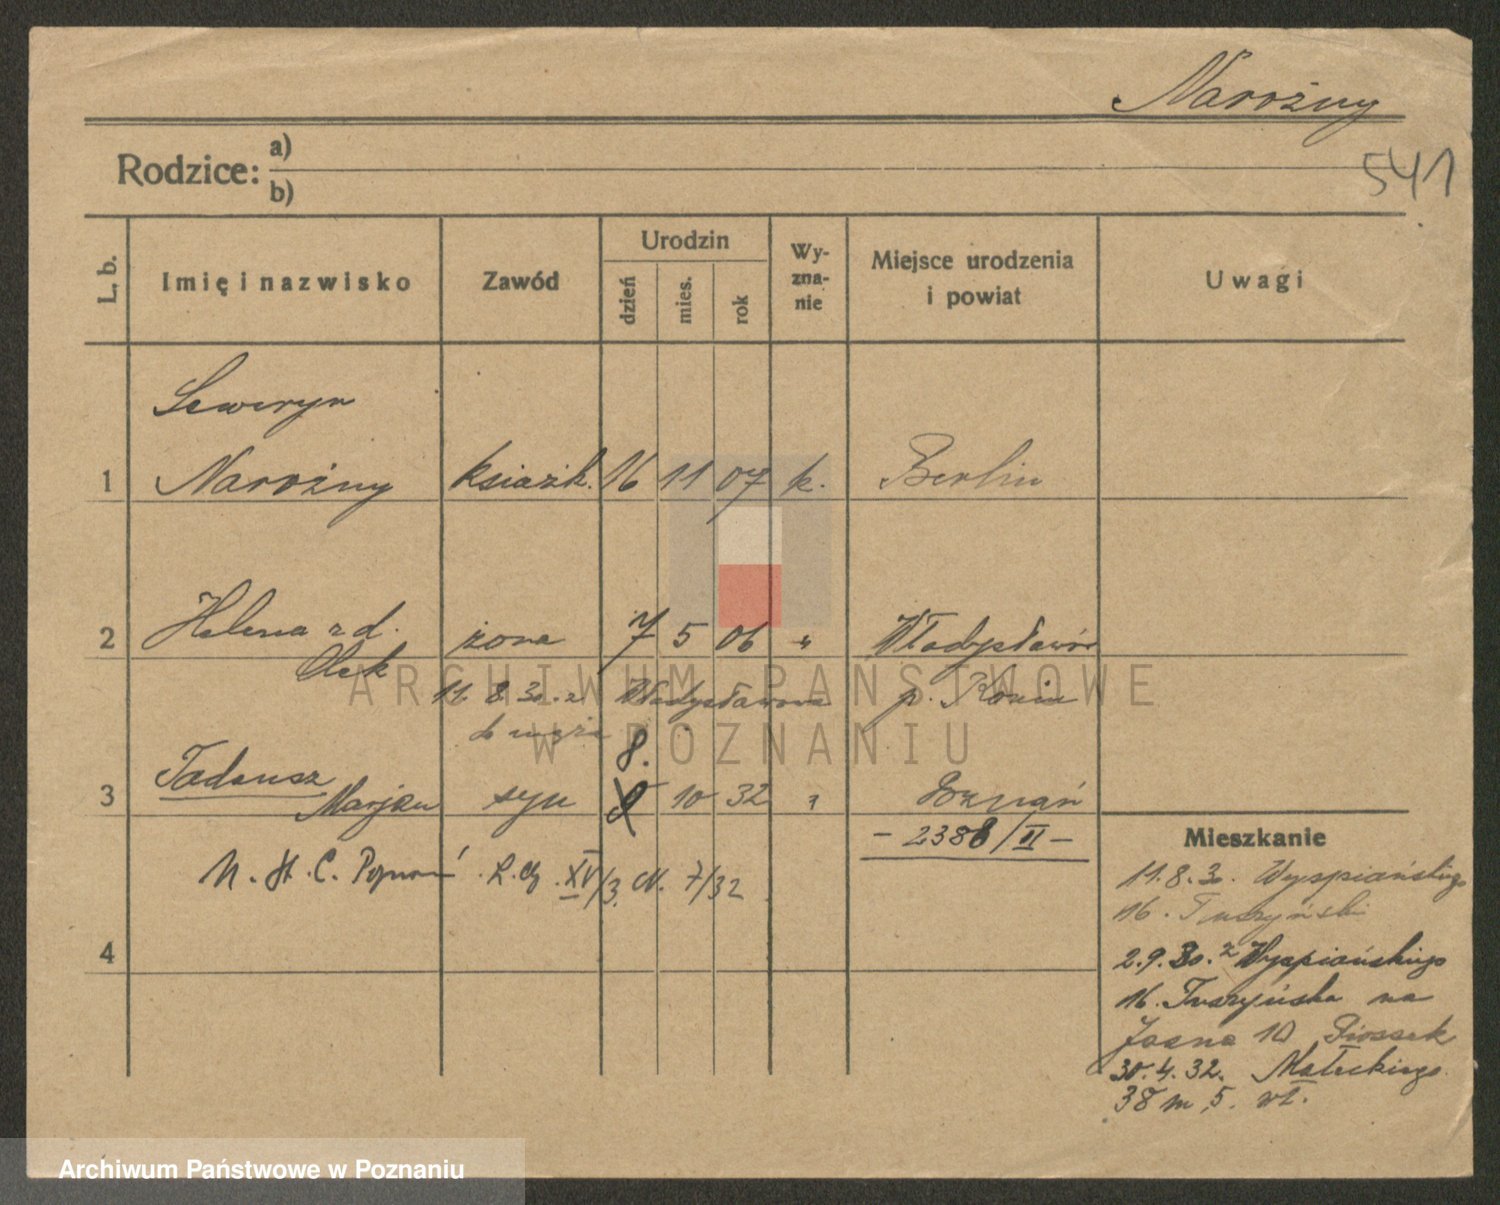 Narożny
541
Rodzice: a)
b)
L. b.
Imię i nazwisko
Zawód
Urodzin
dzień
mies.
rok
Wy-
zna-
nie
Miejsce urodzenia
i powiat
Uwagi
Seweryn
1 Narożny książk. 16 11 07 k. Berlin
2 Helena z d. żona 7 5 06 " Władysławów
Olek
11.8.30. z Władysławowa p. Konin
do męża
8.
3 Tadeusz
Marjan syn 8 10 32 " Poznań
- 2388/II -
N. St. C. Poznań XV/3. N. 7/32
4
Mieszkanie
11.8.30. Wyspiańskiego
16. Tuszyński
2.9.30. z Wyspiańskiego
16. Tuszyńska na
Jasna 10 Piossek
30.4.32. Małeckiego
38 m. 5. wł.
ARCHIWUM PAŃSTWOWE
W POZNANIU
Archiwum Państwowe w Poznaniu